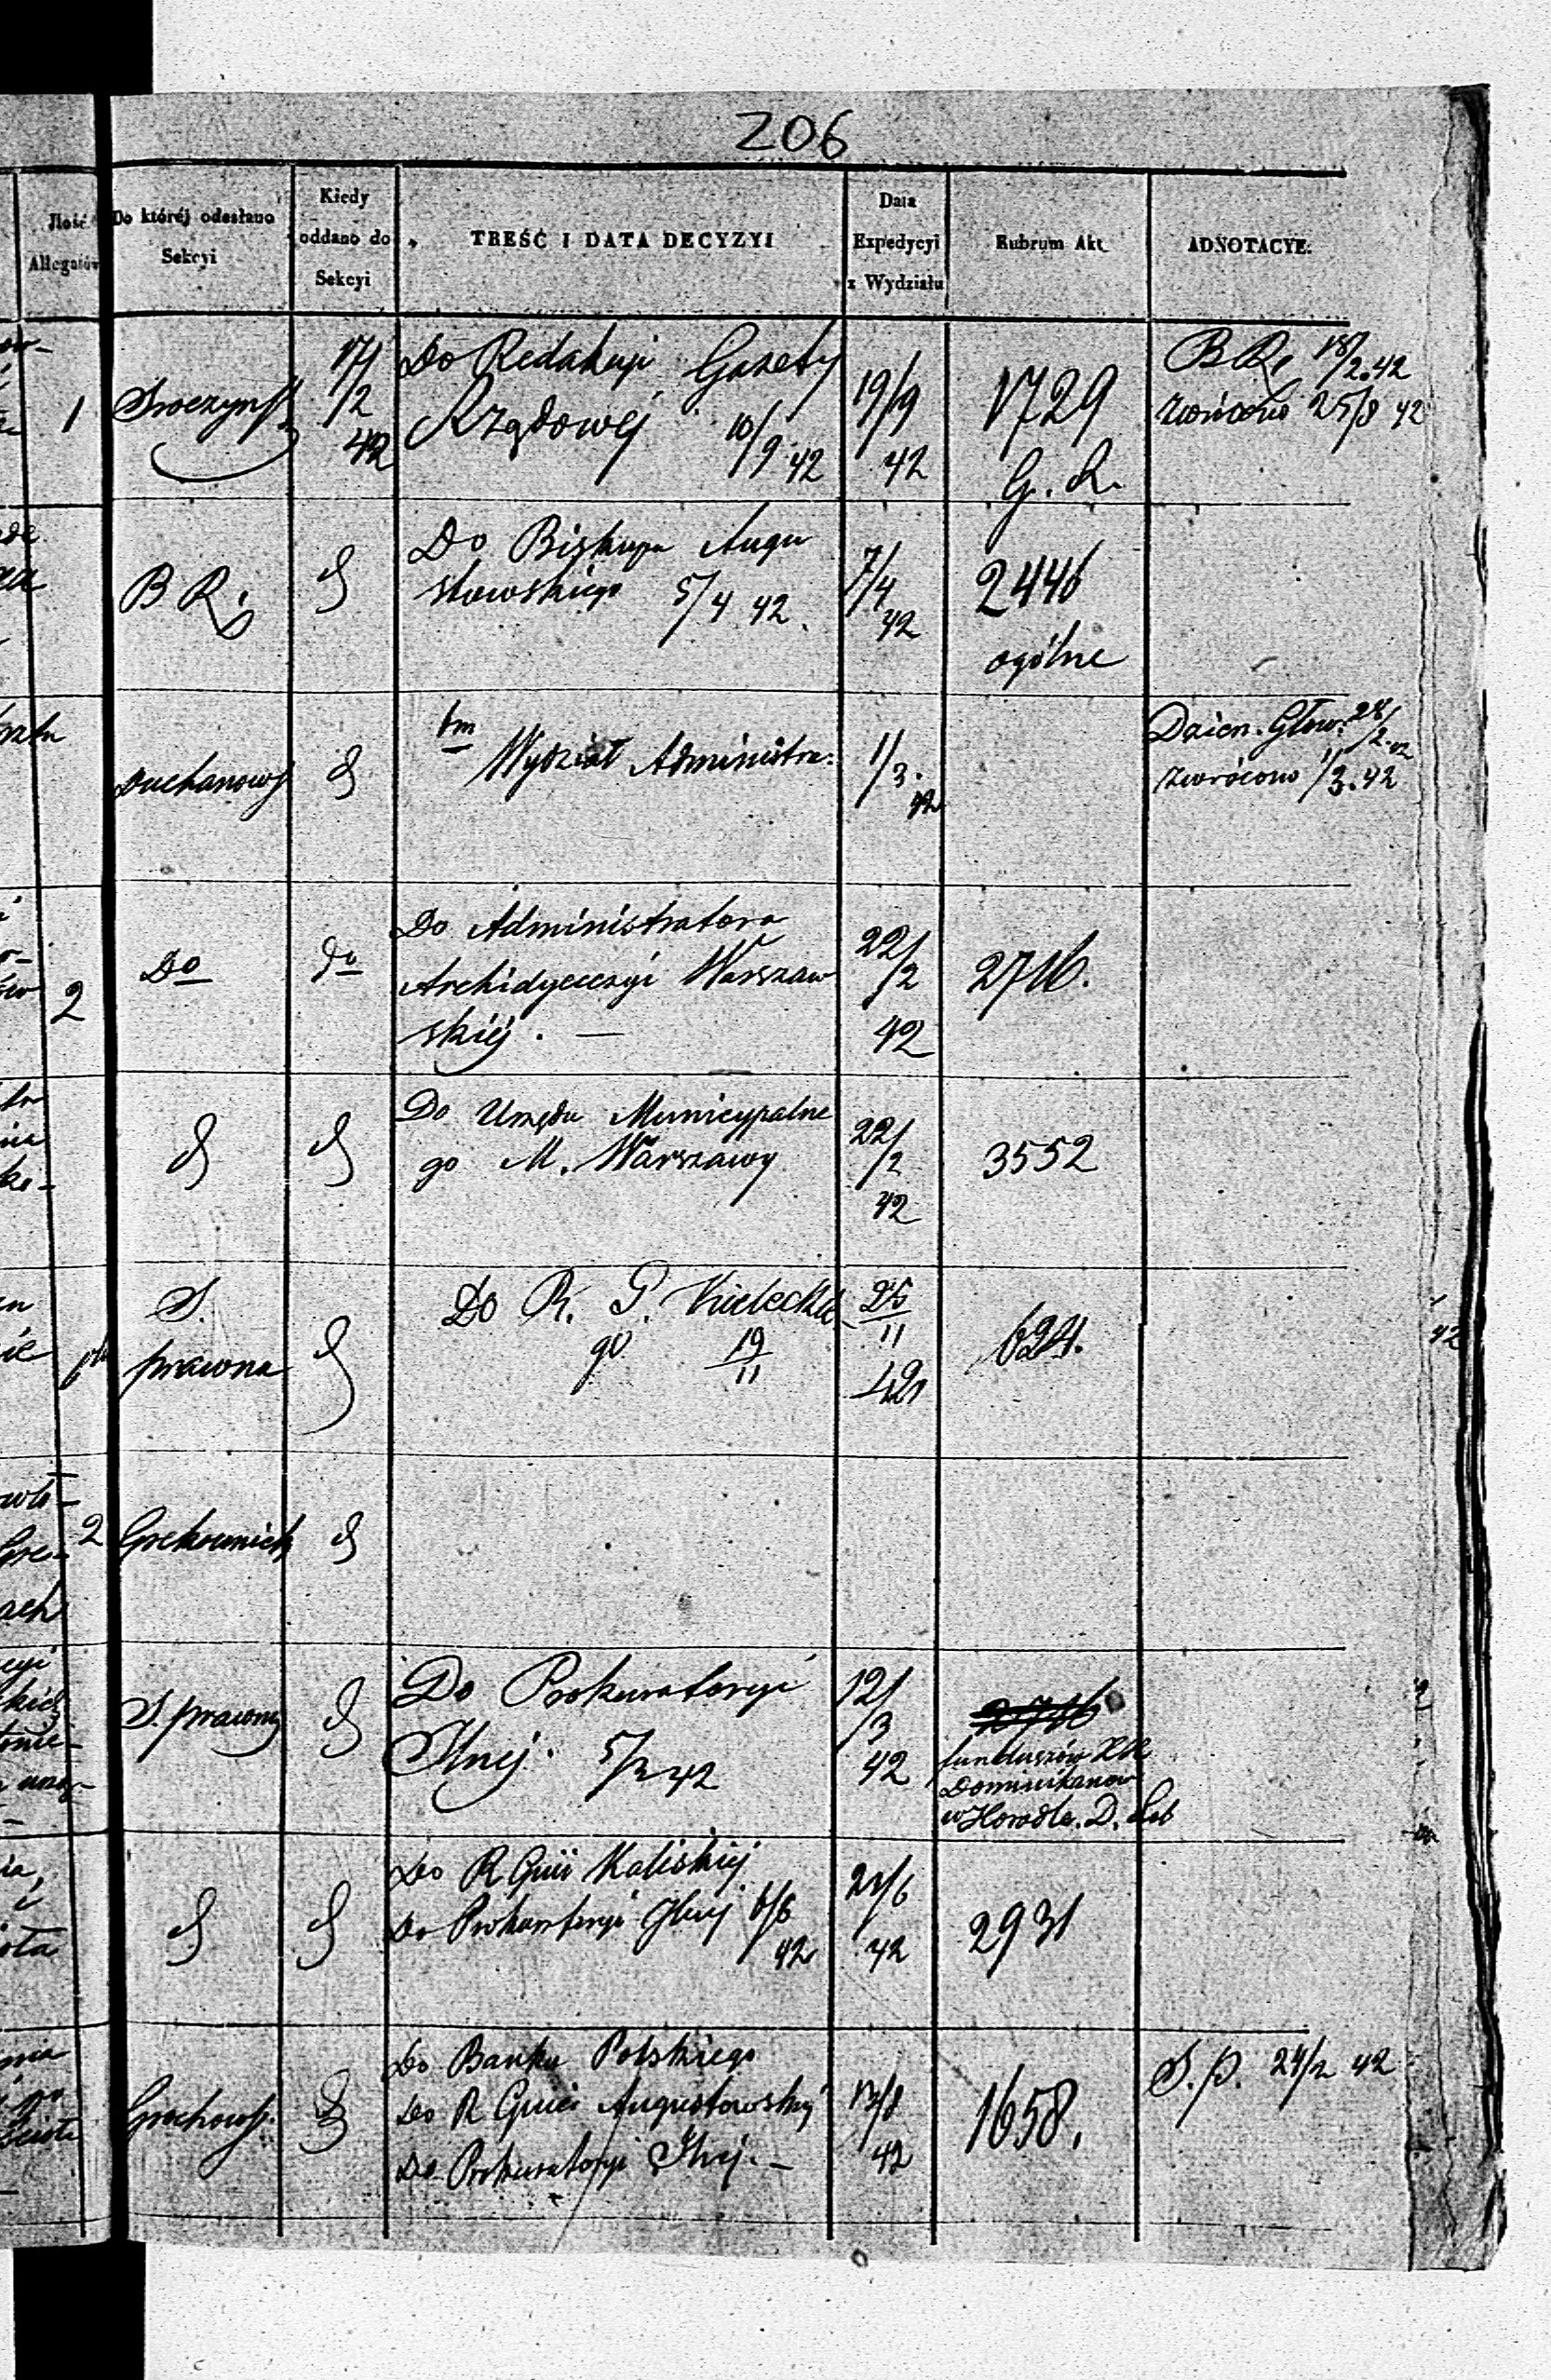 206
Ilość Allegatów
Do któréj odesłano Sekcyi
Kiedy oddano do Sekcyi
TREŚĆ I DATA DECYZYI
Data Expedycyi z Wydziału
Rubrum Akt
ADNOTACYE.
1
17/2 42
Do Redakcyi Gazety
Rządowéj 10/9 42
19/9 42
1729
G. R.
B R. 18/2. 42
zwrócono 25/8 42
B R.
Do Biskupa Augu
stowskiego 5/4 42.
7/4 42
2446
ogólne
Wydział Administra:
1/3. 42
Dzien. Głow. 28/2. 42
zwrócono 1/3. 42
2
Do
do
Do Administratora
Archidyecezyi Warszaw
skiéj. —
22/2 42
2716.
Do Urzędu Municypalne
go M. Warszawy
22/2 42
3552
S.
prawna
Do R. G. Kieleckie
go 19/11
25/11 42
624.
2
S. prawna
Do Prokuratoryi
5/2 42
12/3 42
funduszów XX
Dominikanów
w Horodle. D. Lub
Do R Gnii Kaliskiéj
Do Prokuratoryi 6/6 42
21/6 42
2931
Do Banku Polskiego
Do R Gnii Augustowskiéj
Do Prokuratoryi
13/8 42
1658.
S. p. 24/2 42